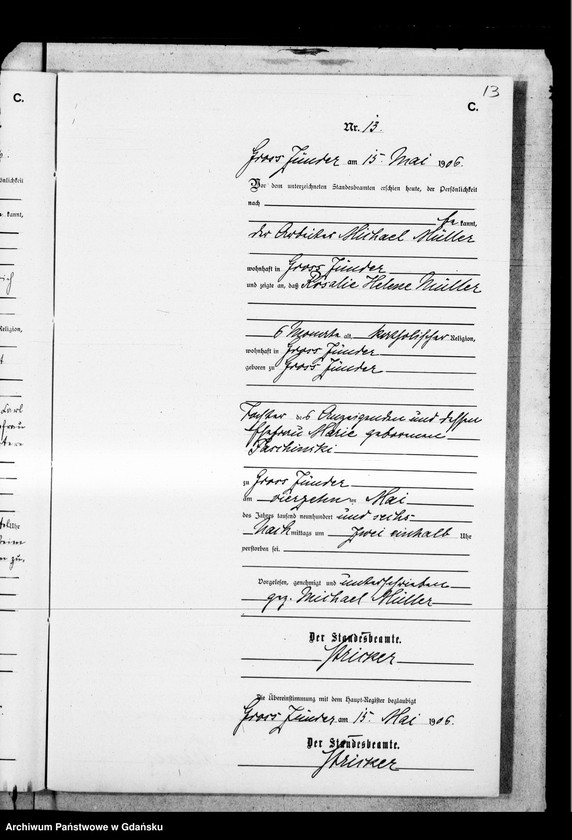 13
C.
C.
Nr. 13.
Gross Zünder am 15. Mai 1906.
Vor dem unterzeichneten Standesbeamten erschien heute, der Persönlichkeit
nach
be kannt,
der Arbeiter Michael Müller
wohnhaft in Gross Zünder
und zeigte an, daß Rosalie Helene Müller
6 Monate alt, katholischer Religion,
wohnhaft in Gross Zünder
geboren zu Gross Zünder
Tochter des Anzeigenden und dessen
Ehefrau Marie geborenen
zu Gross Zünder
am vierzehn ten Mai
des Jahres tausend neunhundert und sechs
Nach mittags um zwei einhalb Uhr
verstorben sei.
Vorgelesen, genehmigt und unterschrieben
gez. Michael Müller
Der Standesbeamte.
Stricker
Die Übereinstimmung mit dem Haupt-Register beglaubigt
Gross Zünder am 15. Mai 1906.
Der Standesbeamte.
Stricker
Archiwum Państwowe w Gdańsku